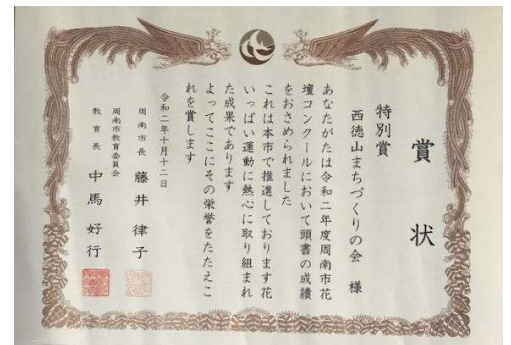 賞状
特別賞
西徳山まちづくりの会 様
あなたがたは令和二年度周南市花
壇コンクールにおいて頭書の成績
をおさめられました
これは本市で推進しております花
いっぱい運動に熱心に取り組まれ
た成果であります
よってここにその栄誉をたたえこ
れを賞します
令和二年十月十二日
周南市長 藤井律子
周南市教育委員会
教育長 中馬好行